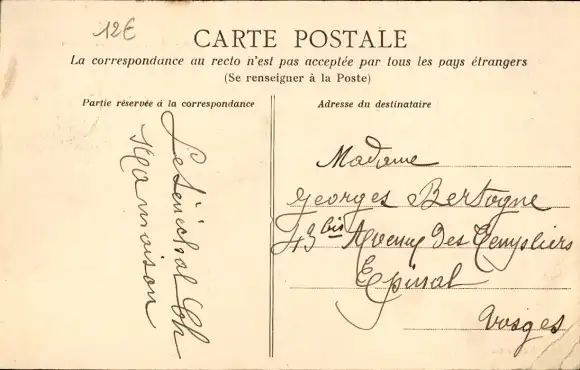 12€
CARTE POSTALE
La correspondance au recto n'est pas acceptée par tous les pays étrangers
(Se renseigner à la Poste)
Partie réservée à la correspondance
Adresse du destinataire
Le Sénéchal Ch
Madame
Georges Bertogne
43 bis Avenue des Templiers
Epinal
Vosges